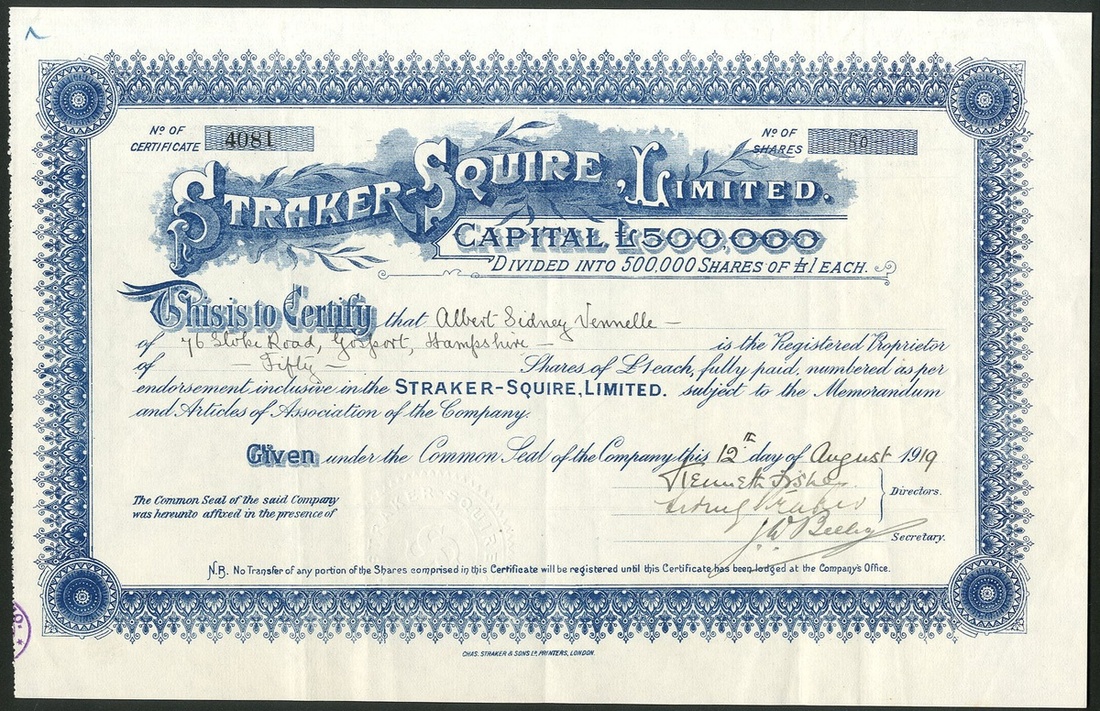 Nº OF CERTIFICATE 4081
Nº OF SHARES 50
STRAKER-SQUIRE, LIMITED.
CAPITAL, £500,000
DIVIDED INTO 500,000 SHARES OF £1 EACH.
This is to Certify that Albert Sidney Vennelle –
of 76 Stoke Road, Gosport, Hampshire – is the Registered Proprietor
of – Fifty – Shares of £1 each, fully paid, numbered as per
endorsement inclusive in the STRAKER-SQUIRE, LIMITED. subject to the Memorandum
and Articles of Association of the Company.
Given under the Common Seal of the Company this 12th day of August 1919
Kenneth Fisher
Directors.
The Common Seal of the said Company
was hereunto affixed in the presence of
Secretary.
N.B. No Transfer of any portion of the Shares comprised in this Certificate will be registered until this Certificate has been lodged at the Company's Office.
CHAS. STRAKER & SONS LD. PRINTERS, LONDON.